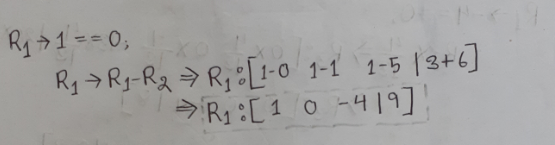 R₁→1==0;
R₁→R₁-R₂ ⇒ R₁:[1-0 1-1 1-5 |3+6]
⇒ R₁:[ 1 0 -4|9]